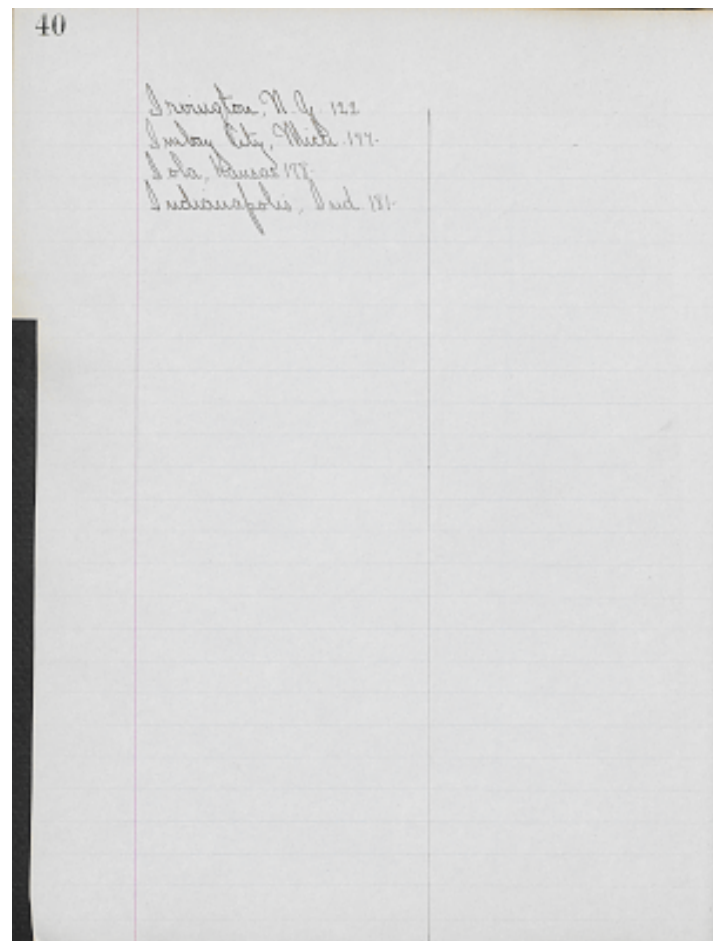 40
Irvington, N.Y. 122
Imlay City, Mich. 177.
Iola, Kansas 178.
Indianapolis, Ind. 181.